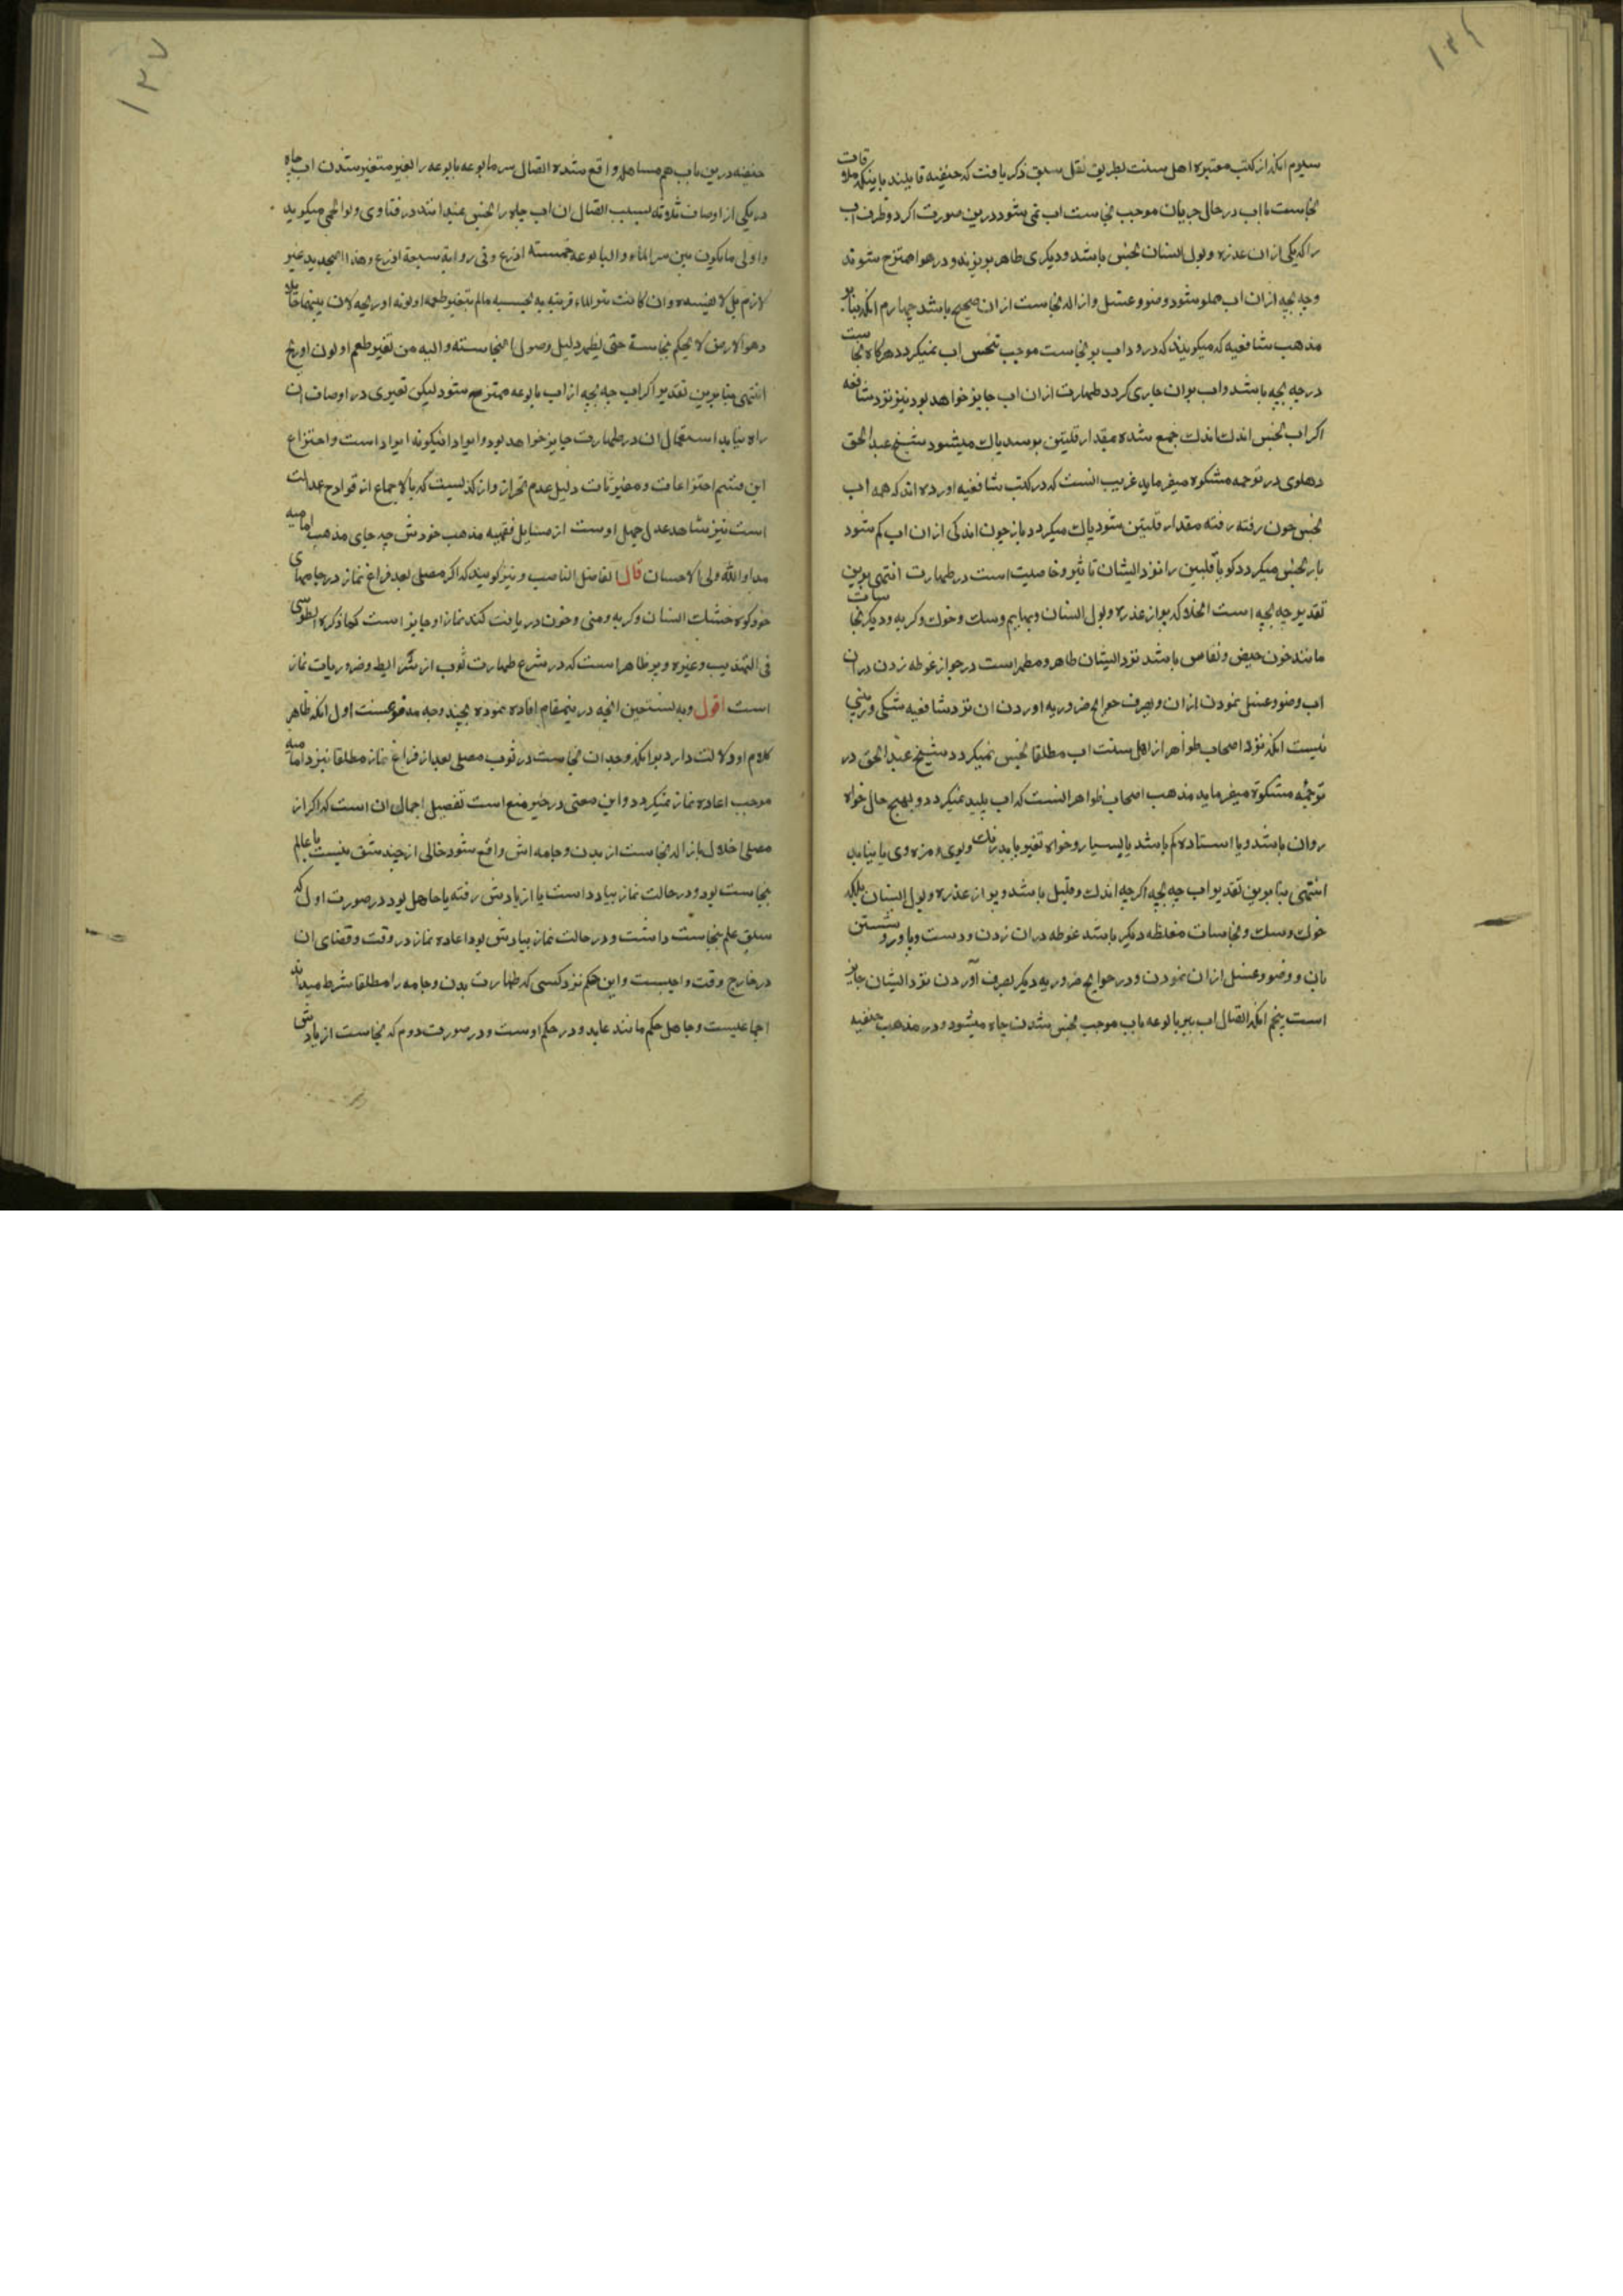 ۱۳۶
سیوم انکه از کتب معتبره اهل سنت بطریق نقل سبق ذکر یافت که حنفیه قایلند باینکه ملاقات
نجاست با اب در حال جریان موجب نجاست اب نمی شود درین صورت اکر دو ظرف اب
را که یکی از ان عذره و بول انسان نجس باشد و دیکری طاهر بریزند و در هوا ممتزج شوند
وچه بچه ازان اب مملو شود وضو و غسل و ازاله نجاست ازان صحیح باشد چهارم انکه بنا بر
مذهب شافعیه که میکویند که ورود اب بر نجاست موجب تنجس اب نمیکردد هرکاه نجاست
در چه بچه باشد و اب بران جاری کردد طهارت ازان اب جایز خواهد بود نیز نزد شافعیه
اکر اب نجس اندک اندک جمع شده بمقدار قلتین برسد پاک میشود شیخ عبد الحق
دهلوی در ترجمه مشکوه میفرماید غریب انست که در کتب شافعیه اورده اند که همه اب
نجس چون رفته رفته مقدار قلتین شود پاک میکردد باز چون اندکی ازان اب کم شود
باز نجس میکردد کویا قلتین را نزد ایشان تاثیر و خاصیت است در طهارت انتهی برین
تقدیر چه بچه است الخلا که پر از عذره و بول انسان و بهایم و سک و خوک و کربه و دیکر نجاسات
مانند خون حیض و نفاس باشد نزد ایشان طاهر و مطهر است در جواز غوطه زدن دران
اب وضو و غسل نمودن ازان و بصرف حوایج ضروریه اوردن ان نزد شافعیه شکی و ریبی
نیست انکه نزد اصحاب ظواهر از اهل سنت اب مطلقا نجس نمیکردد شیخ عبد الحق در
ترجمهٔ مشکوة میفرماید مذهب اصحاب ظواهر انست که اب پلید نمیکردد و بهیچ حال خواه
روان باشد و یا استاده کم باشد یا بسیار و خواه تغیر یابد رنک و بوی و مزه وی یا نیابد
انتهی بنا برین تقدیر اب چه بچه اکرچه اندک و قلیل باشد و پر از عذره و بول انسان بلکه
خوک و سک و نجاسات مغلظه دیکر باشد غوطه دران زدن و دست و پا و رو شستن
بان و وضو و غسل ازان نمودن و در حوایج ضروریه دیکر بصرف آوردن نزد ایشان جایز
است پنجم انکه اتصال اب ببر بالوعه باب موجب نجس شدن چاه میشود و در مذهب حنفیه
۱۳۷
حنفیه درین باب هم مساهله واقع شده اتصال بیر ما بوعه بالوعه را بغیر متغیر شدن اب چاه
در یکی از اوصاف ثلاثه بسبب اتصال ان اب چاه را نجس نمیدانند در فتاوی ولوالجی میکوید
واولی ما یکون بین بیر الماء والبالوعه خمسته اذرع وفی روایة سبعة اذرع وهذا التحدید غیر
لازم بل لا ینجسه وان کانت بیر الماء قریبه به نجسیه مالم یتغیر طعمه او لونه او ریحه لان بینهما حایلا
وهو الارض لا یحکم نجاسة حتی یظهر دلیل وصول النجاسته والیه من تغیر طعم او لون او ریح
انتهی بنا برین تقدیر اکر اب چه بچه از اب بالوعه ممتزج شود لیکن تغیری در اوصاف ان
راه نیابد استعمال ان در طهارت جایز خواهد بود و ایراد اینکونه ایراداست و اختراع
این قسم اختراعات و مفتریات دلیل عدم تحرز از کذبست که بالاجماع از قوادح عدالت
است نیز شاهد عدل جهل اوست از مسایل فقهیه مذهب خودش چه جای مذهب امامیه
هداه الله ولی الاحسان قال الفاضل الناصب و نیز کویند که اکر مصلی بعد فراغ نماز در جامهای
خود کوه خشک انسان و کربه و منی و خون دریافت کند نماز او جایز است کما ذکره الطوسی
فی التهذیب وغیره وپر ظاهر است که در شرع طهارت ثوب از شرایط و ضروریات نماز
است اقول وبه نستعین انچه درینمقام افاده نموده بچند وجه مدفوعست اول انکه ظاهر
کلام او دلالت دارد بر انکه وجدان نجاست در ثوب مصلی بعد از فراغ نماز مطلقا نزد امامیه
موجب اعاده نماز نمیکردد و این معنی در حیز منع است تفصیل اجمال ان است که اکر از
مصلی اخلال بازاله نجاست از بدن و جامه اش واقع شود خالی از چند شق نیست یا عالم
بنجاست بود و در حالت نماز بیاد داشت یا از یادش رفته یا جاهل بود در صورت اول که
سابق علم بنجاست داشت و در حالت نماز بیادش بود اعاده نماز در وقت و قضای ان
در خارج وقت واجبست و این حکم نزد کسی که طهارت بدن و جامه را مطلقا شرط میداند
اجماعیست و جاهل حکم مانند عابد و در حکم اوست و در صورت دوم که نجاست از یادش